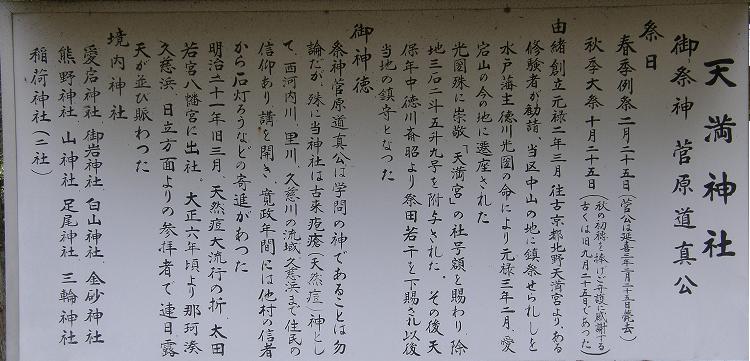 天満神社
御祭神 菅原道真公
祭日
春季例祭 二月二十五日(菅公は延喜三年二月二十五日薨去)
秋季大祭 十月二十五日(秋の初穂を捧げご守護に感謝する)
(古くは旧九月二十五日であった)
由緒 創立元禄二年三月 往古京都北野天満宮より、ある
修験者が勧請 当区中山の地に鎮祭せられしを
水戸藩主徳川光圀の命により元禄三年二月、愛
宕山の今の地に遷座された
光圀殊に崇敬「天満宮」の社号額を賜わり、除
地三石二斗五升九号を附与された、その後天
保年中徳川斎昭より祭田若干を下賜され以後
当地の鎮守となつた
御神徳
祭神菅原道真公は学問の神であることは勿
論だが、殊に当神社は古来疱瘡(天然痘)神とし
て、西河内川、里川、久慈川の流域、久慈浜まで住民の
信仰あり、講を開き、寛政年間には他村の信者
から石灯ろうなどの寄進があつた
明治二十一年旧三月、天然痘大流行の折 太田
若宮八幡宮に出社。大正六年頃より那珂湊
久慈浜、日立方面よりの参拝者で連日、露
天が並び賑わつた
境内神社
愛宕神社 御岩神社 白山神社 金砂神社
熊野神社 山神社 足尾神社 三輪神社
稲荷神社(二社)